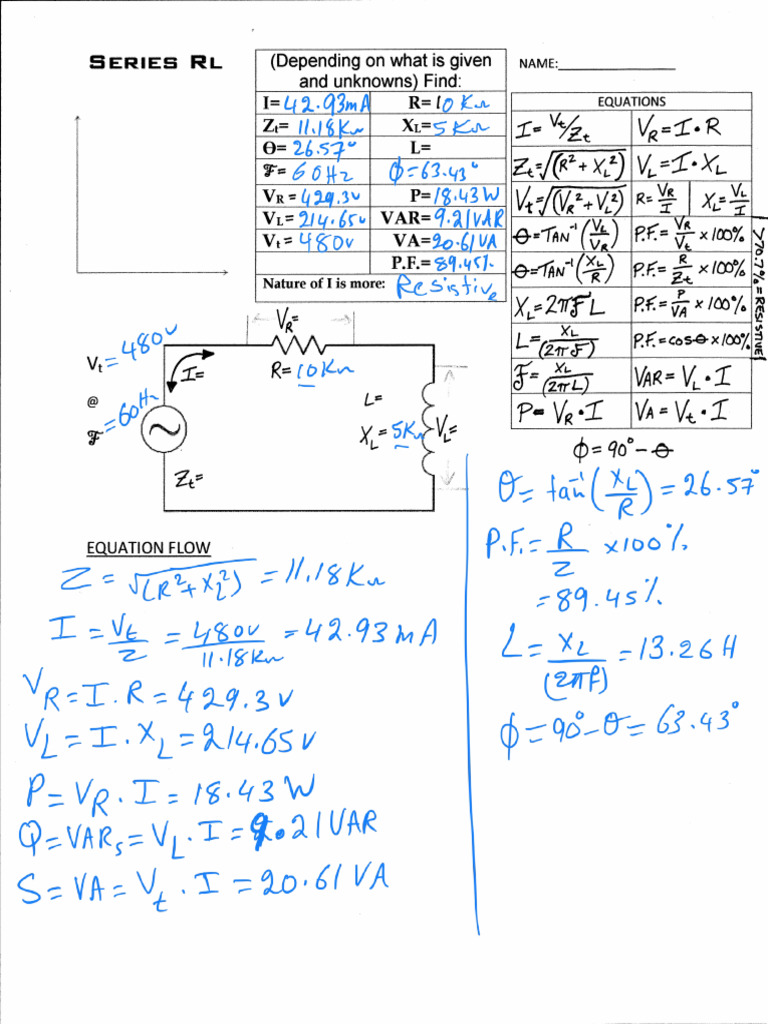 SERIES RL
(Depending on what is given
and unknowns) Find:
I= 42.93mA R= 10 KΩ
Zt= 11.18KΩ XL= 5 KΩ
Θ= 26.57° L=
F= 60Hz ϕ=63.43°
VR = 429.3v P= 18.43W
VL= 214.65v VAR= 9.21VAR
Vt = 480v VA= 20.61VA
P.F.= 89.45%
Nature of I is more: Resistive
NAME:
EQUATIONS
I= Vt/Zt VR=I•R
Zt=√(R²+XL²) VL=I•XL
Vt=√(VR²+VL²) R= VR/I XL= VL/I
Θ=TAN⁻¹(VL/VR) P.F.= VR/Vt ×100%
Θ=TAN⁻¹(XL/R) P.F.= R/Zt ×100%
XL=2πFL P.F.= P/VA ×100%
L= XL/(2πF) P.F.=COSΘ×100%
F= XL/(2πL) VAR=VL•I
P=VR•I VA=Vt•I
>70.7%=RESISTIVE
ϕ=90°-Θ
VR=
Vt =480v
I=
R= 10KΩ
@
F =60Hz
L=
XL= 5KΩ
VL=
Zt=
EQUATION FLOW
Z = √(R²+XL²) = 11.18KΩ
I = Vt/Z = 480v/11.18KΩ = 42.93mA
VR=I.R=429.3v
VL=I.XL=214.65v
P=VR.I=18.43W
Q=VARs=VL.I=9.21VAR
S=VA=Vt.I=20.61VA
θ=tan⁻¹(XL/R)=26.57°
P.F.= R/Z ×100%
=89.45%
L= XL/(2πf) =13.26H
ϕ=90°-θ=63.43°